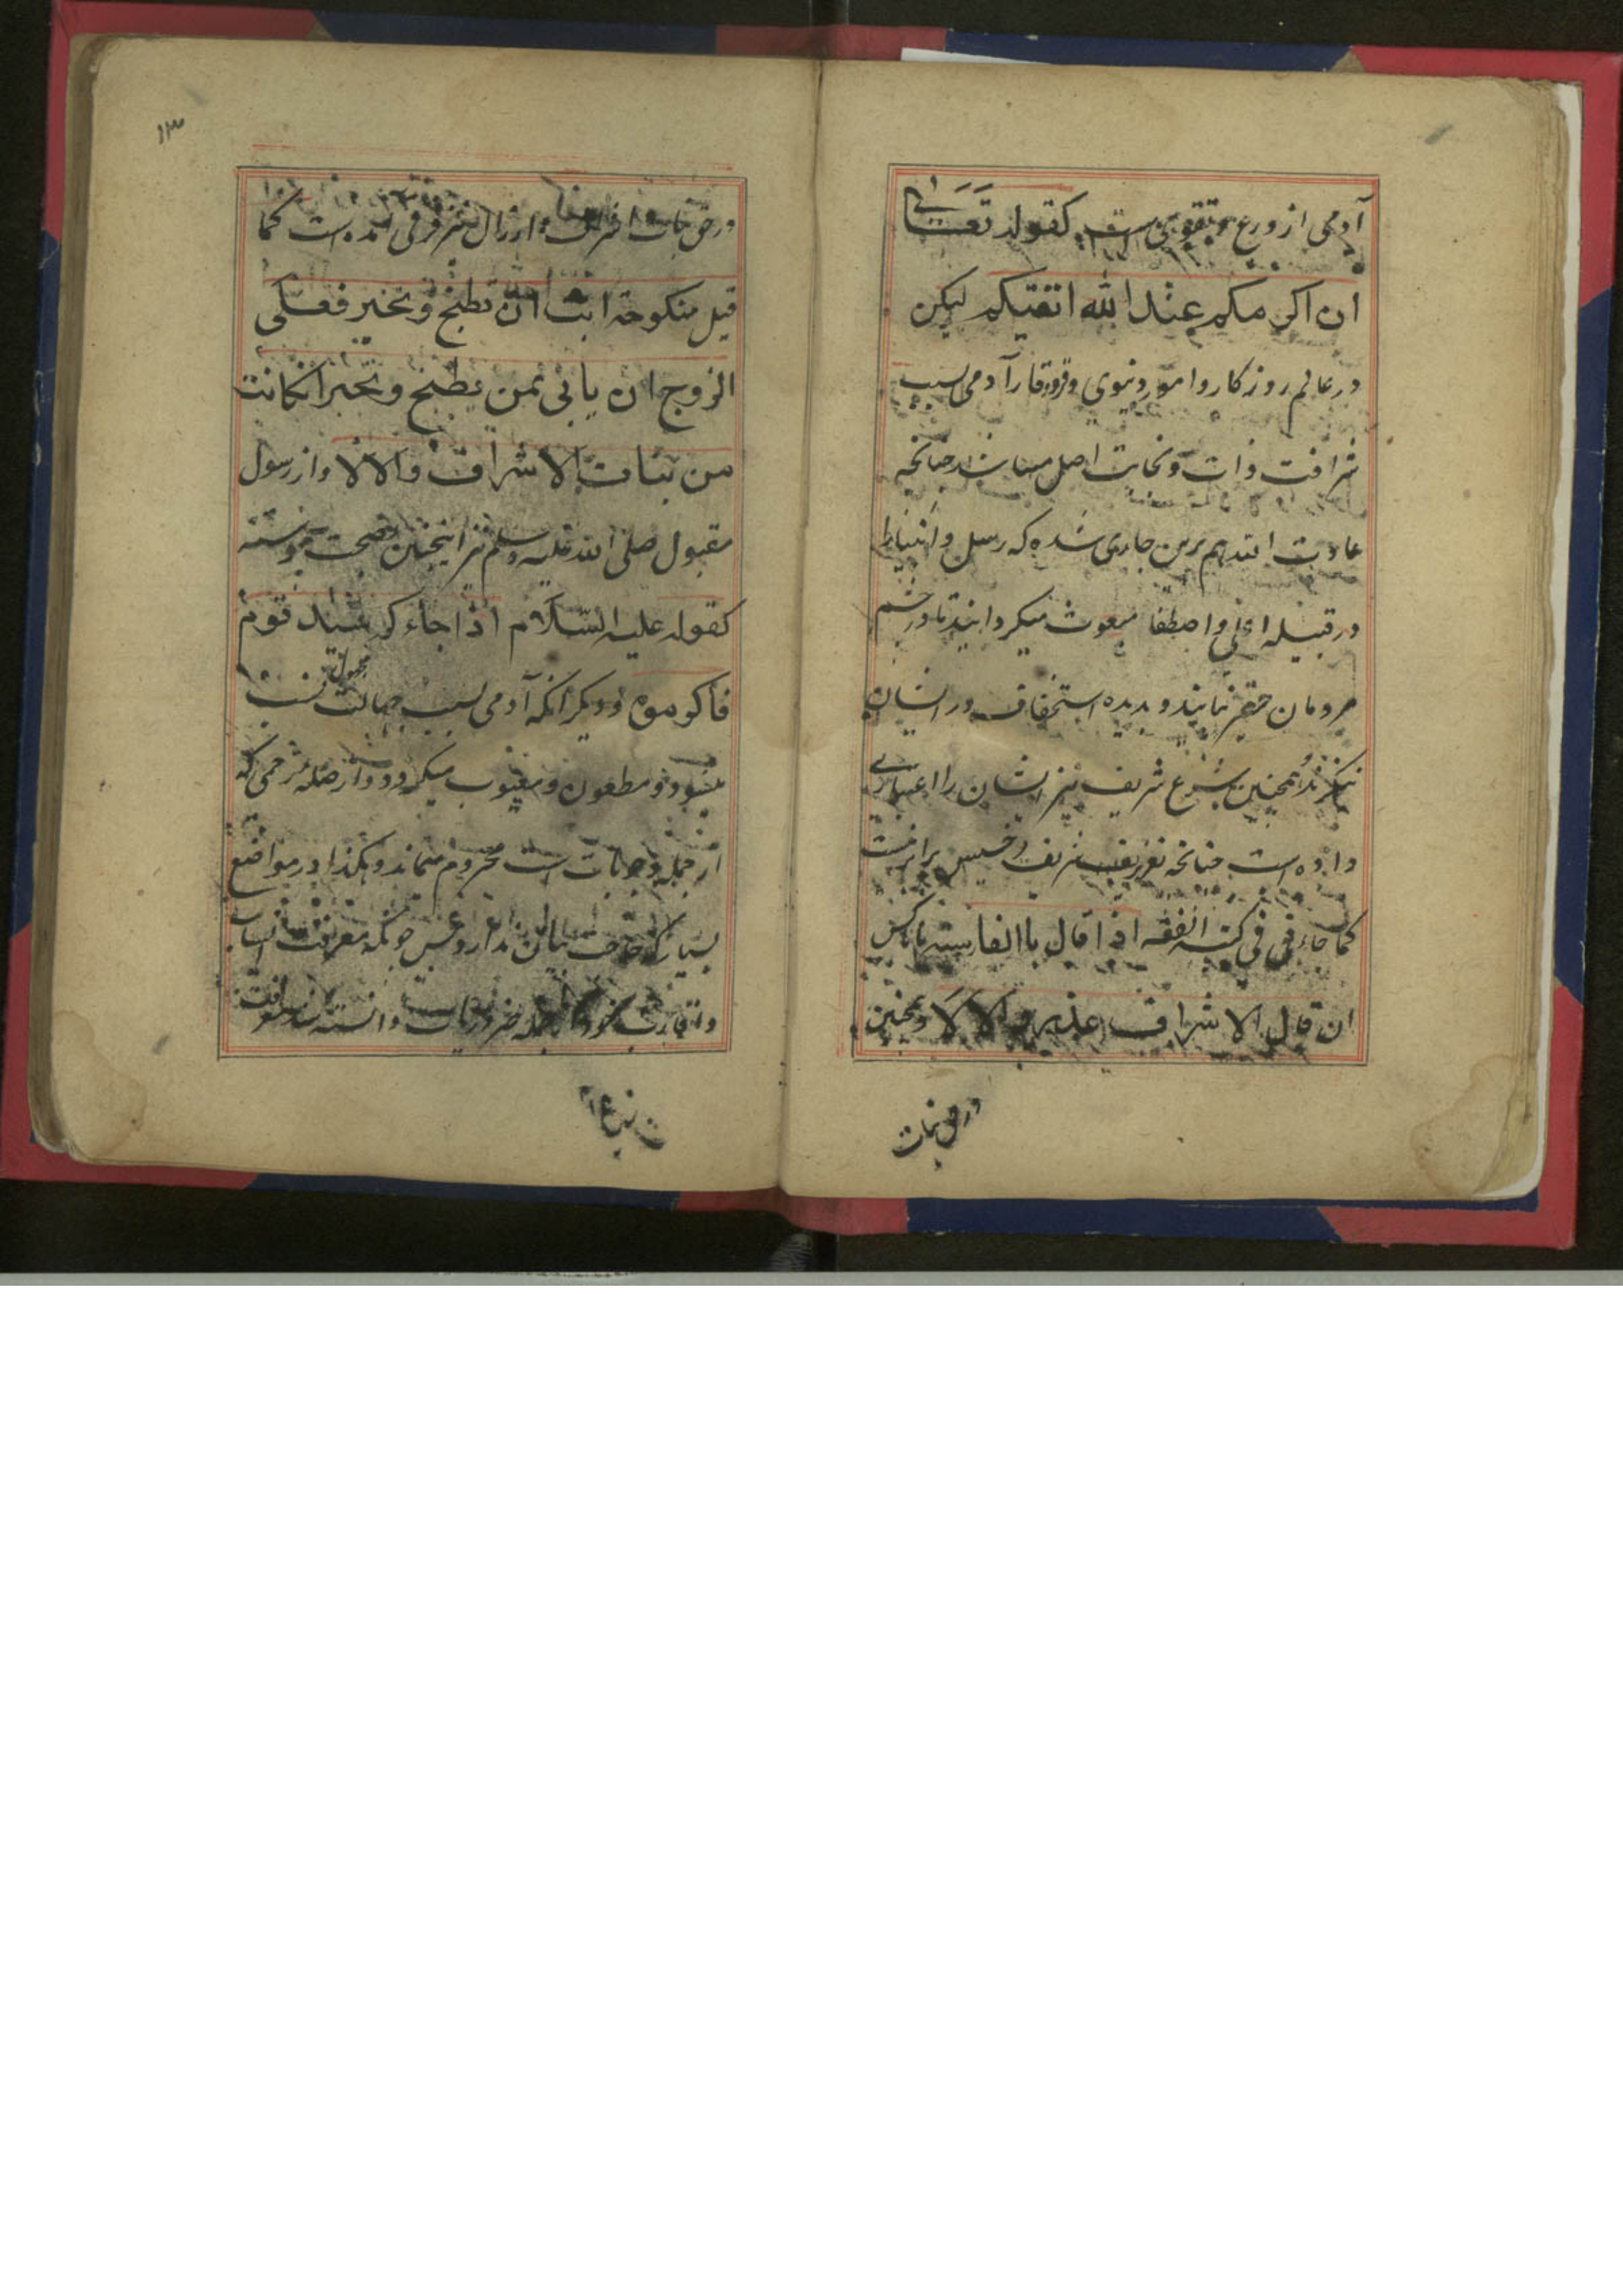 آدمی از ورع و تقوی است کقوله تعالی
ان اکرمکم عند الله اتقیکم لیکن
در عالم روزکار و امور دنیوی وقر و وقار آدمی بسبب
شرافت ذات و نجابت اصل میباشد چنانچه
عادت الله هم برین جاری شده که رسل و انبیا را
در قبیله اعلی و اصطفا مبعوث میکرداند تا در چشم
مردمان حقیر نمایند و بدیده استخفاف در ایشان
ننکرند همچنین شرع شریف نیز ایشان را اعتباری
داده است چنانچه تعزیر شریف و خسیس برابر نیست
کما جاء فی کتب الفقه اذا قال باالفارسیه ناکس
ان قال الاشراف عذیر و الا لا و همچنین
در حق بنات
۱۳
در حق بنات اشراف و ارزال نیز فرقی آمده است کما
قیل منکوحة ابت ان تطبخ و تخبز فعلی
الزوج ان یاتی بمن یطبخ و تخبز انکانت
من بنات الاشراف والا لا و از رسول
مقبول صلی الله علیه وسلم نیز اینچنین بصحت پیوسته
کقوله علیه السلام اذا جاءکم سید قوم
فاکرموه و دیکر آنکه آدمی بسبب جهالت نسب
مجهول
میشود و مطعون و معیوب میکردد و از صله رحمی که
از جمله وجوبات است محروم میماند و هکذا در مواضع
بسیار که حاجت بیان ندارد و غرض چونکه معرفت انساب
و اقارب خود از جمله ضروریات دانسته شد